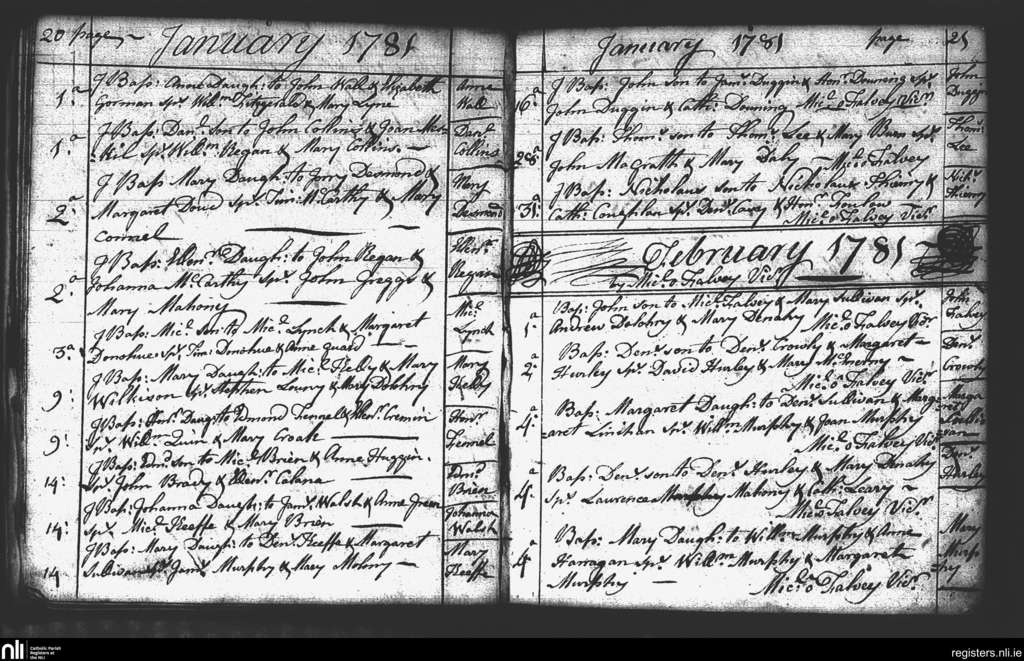 20 page January 1781
1.a J Bap: Anne Daugh: to John Wall & Elizabeth
Gorman Spr. Willm Fitzgerald & Mary Lyne
Anne Wall
1.a J Bap: Danl. son to John Collins & Joan
Spr. Willm Regan & Mary Collins
Danl. Collins
2.a J Bap Mary Daugh: to Jerry Desmond &
Margaret Spr. Tim: McCarthy & Mary
Connel
Mary Desmond
2.a J Bap: Ellenr. Daugh: to John Regan &
Johanna McCarthy Spr. John Greggs &
Mary Mahony
Ellenr. Regan
3.a J Bap: Micl. Son to Micl. Lynch & Margaret
Donohue Spr. Tim: Donohue & Anne
Micl. Lynch
9: J Bap: Mary Daugh: to Micl. Kelly & Mary
Wilkison Spr. Stephen Lowry & Mary
Mary Kelly
9: J Bap: Daugt: to Edmond Fennel & Cremin
Spr. Willm Quin & Mary Croak
Fennel
14: J Bap: Edmd. son to Micl. Brien & Anne Huggin.
Spr. John Brady & Ellenr. Calana
Edmd. Brien
14: J Bap: Johanna Daugh: to Jams. Walsh & Anne
Spr. Micl. Keeffe & Mary Brien
Johanna Walsh
14 J Bap: Mary Daugh: to Denl. Keeffe & Margaret
Sullivan Spr. Jams. Murphy & Mary Molony
Mary Keeffe
January 1781 page 21
16.a J Bap: John son to Jams. Duggin & Honr. Downing Spr.
John Duggin & Cath: Downing Micl. o Falvey Vicr.
John Duggin
28.a J Bap: Thoms. son to Thoms. Lee & Mary Spr.
John MaGrath & Mary Daly Micl. o Falvey
Thoms. Lee
31.a J Bap: Nicholaus son to Nicholaus Thierry &
Cath: Spr. Denl. Cary & Honr.
Micl. o Falvey Vicr.
Nichs. Thierry
February 1781
by Micl. o Falvey Vicr.
1.a Bap: John son to Micl. Falvey & Mary Sullivan Spr.
Andrew & Mary Denahy Micl. o Falvey Vicr.
John Falvey
2.a Bap: Denl. son to Denl. Crowly & Margaret
Hurley Spr. David Hurley & Mary
Micl. o Falvey Vicr.
Denl. Crowly
4.a Bap: Margaret Daugh: to Denl. Sullivan & Marg-
aret Linihan Spr. Willm Murphy & Joan Murphy
Micl. o Falvey Vicr.
4.a Bap: Denl. son to Denl. Hurley & Mary Denahy
Spr. Lawrence Mahony & Cath: Leary
Micl. o Falvey Vicr.
Denl. Hurley
4.a Bap: Mary Daugh: to Willm Murphy & Anne
Harragan Spr. Willm Murphy & Margaret
Murphy Micl. o Falvey Vicr.
Mary Murphy
nli Catholic Parish
Registers at
the NLI
registers.nli.ie